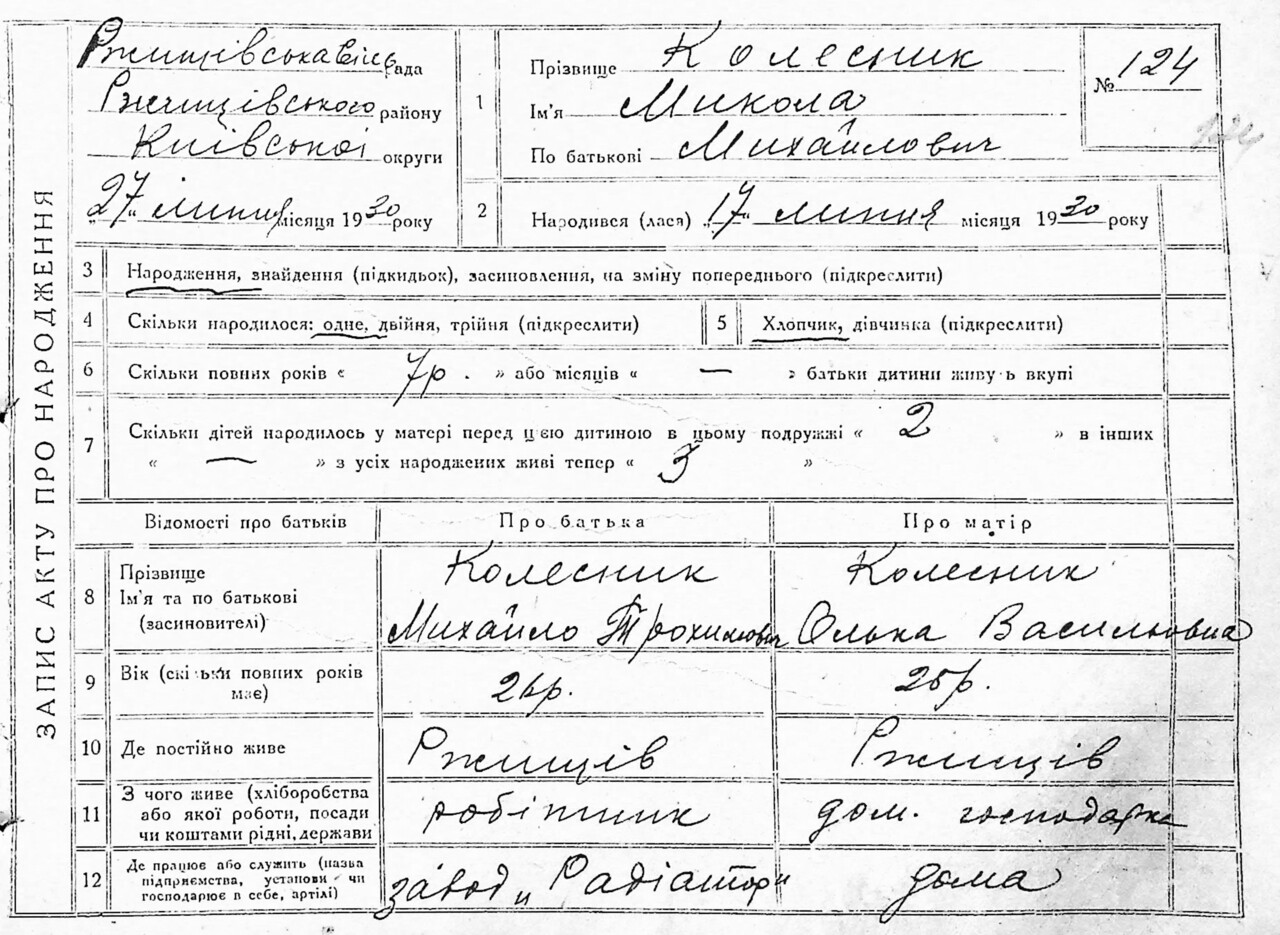 ЗАПИС АКТУ ПРО НАРОДЖЕННЯ
Ржищівська вісь рада
Ржищівського району
Київської округи
„27" липня місяця 1930 року
1
Прізвище Колесник
Ім'я Микола
По батькові Михайлович
№ 124
124
2 Народився (лася) „17" липня місяця 1930 року
3 Народження, знайдення (підкидьок), засиновлення, на зміну попереднього (підкреслити)
4 Скільки народилося: одне, двійня, трійня (підкреслити) 5 Хлопчик, дівчинка (підкреслити)
6 Скільки повних років « 7р. » або місяців « — » батьки дитини живуть вкупі
7 Скільки дітей народилось у матері перед цією дитиною в цьому подружжі « 2 » в інших
« — » з усіх народжених живі тепер « 3 »
Відомості про батьків Про батька Про матір
8 Прізвище
Ім'я та по батькові
(засиновителі)
Колесник
Михайло Трохимович
Колесник
Олька Васильовна
9 Вік (скільки повних років
має)
26р.
25р.
10 Де постійно живе Ржищів Ржищів
11 З чого живе (хліборобства
або якої роботи, посади
чи коштами рідні, держави
робітник
дом. господарка
12 Де працює або служить (назва
підприємства, установи чи
господарює в себе, артілі)
завод „Радіатор"
дома